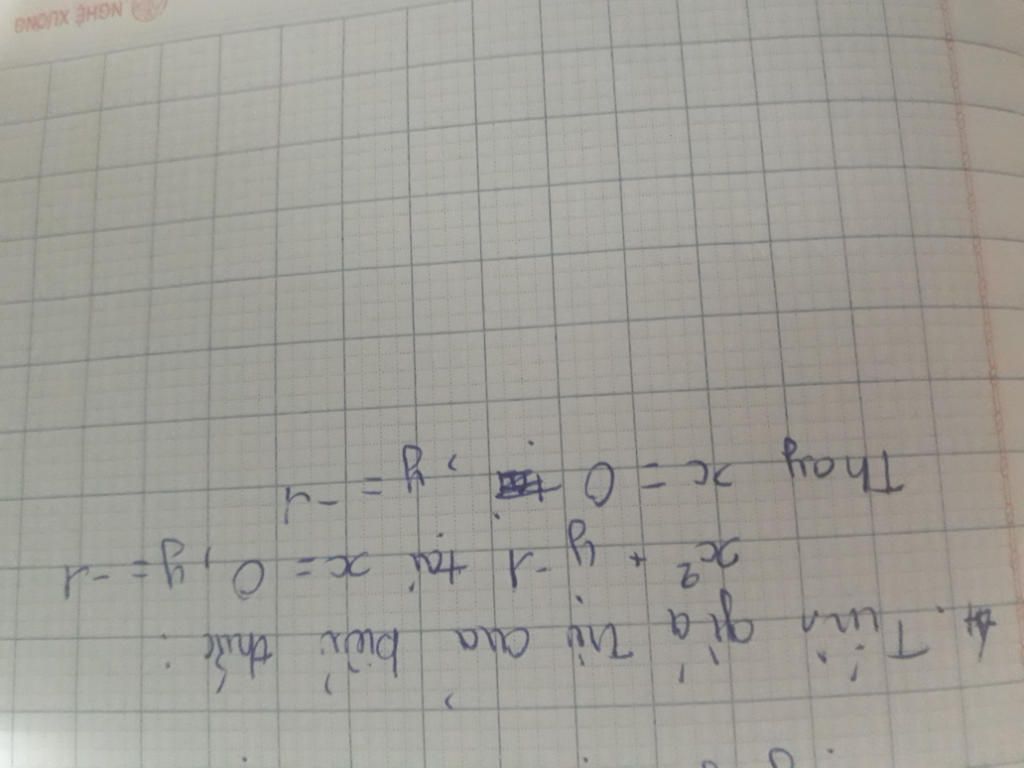 NGHỆ XƯƠNG
4. Tìm giá trị của biểu thức :
x² + y - 1 tại x = 0, y = -1
Thay x = 0 , y = -1